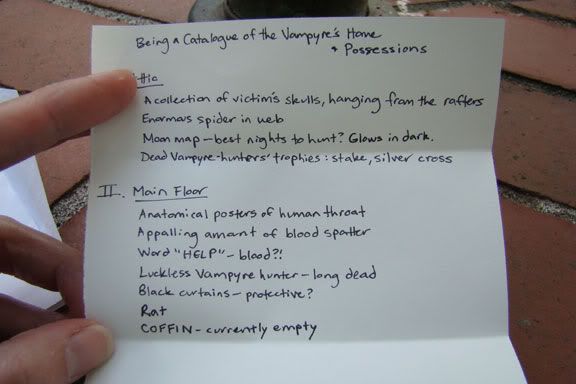 Being a Catalogue of the Vampyre's Home
& Possessions
Attic
A collection of victim's skulls, hanging from the rafters
Enormous spider in web
Moon map - best nights to hunt? Glows in dark.
Dead Vampyre-hunters' trophies: stake, silver cross
II. Main Floor
Anatomical posters of human throat
Appalling amount of blood spatter
Word "HELP" - blood?!
Luckless Vampyre hunter - long dead
Black curtains - protective?
Rat
COFFIN - currently empty